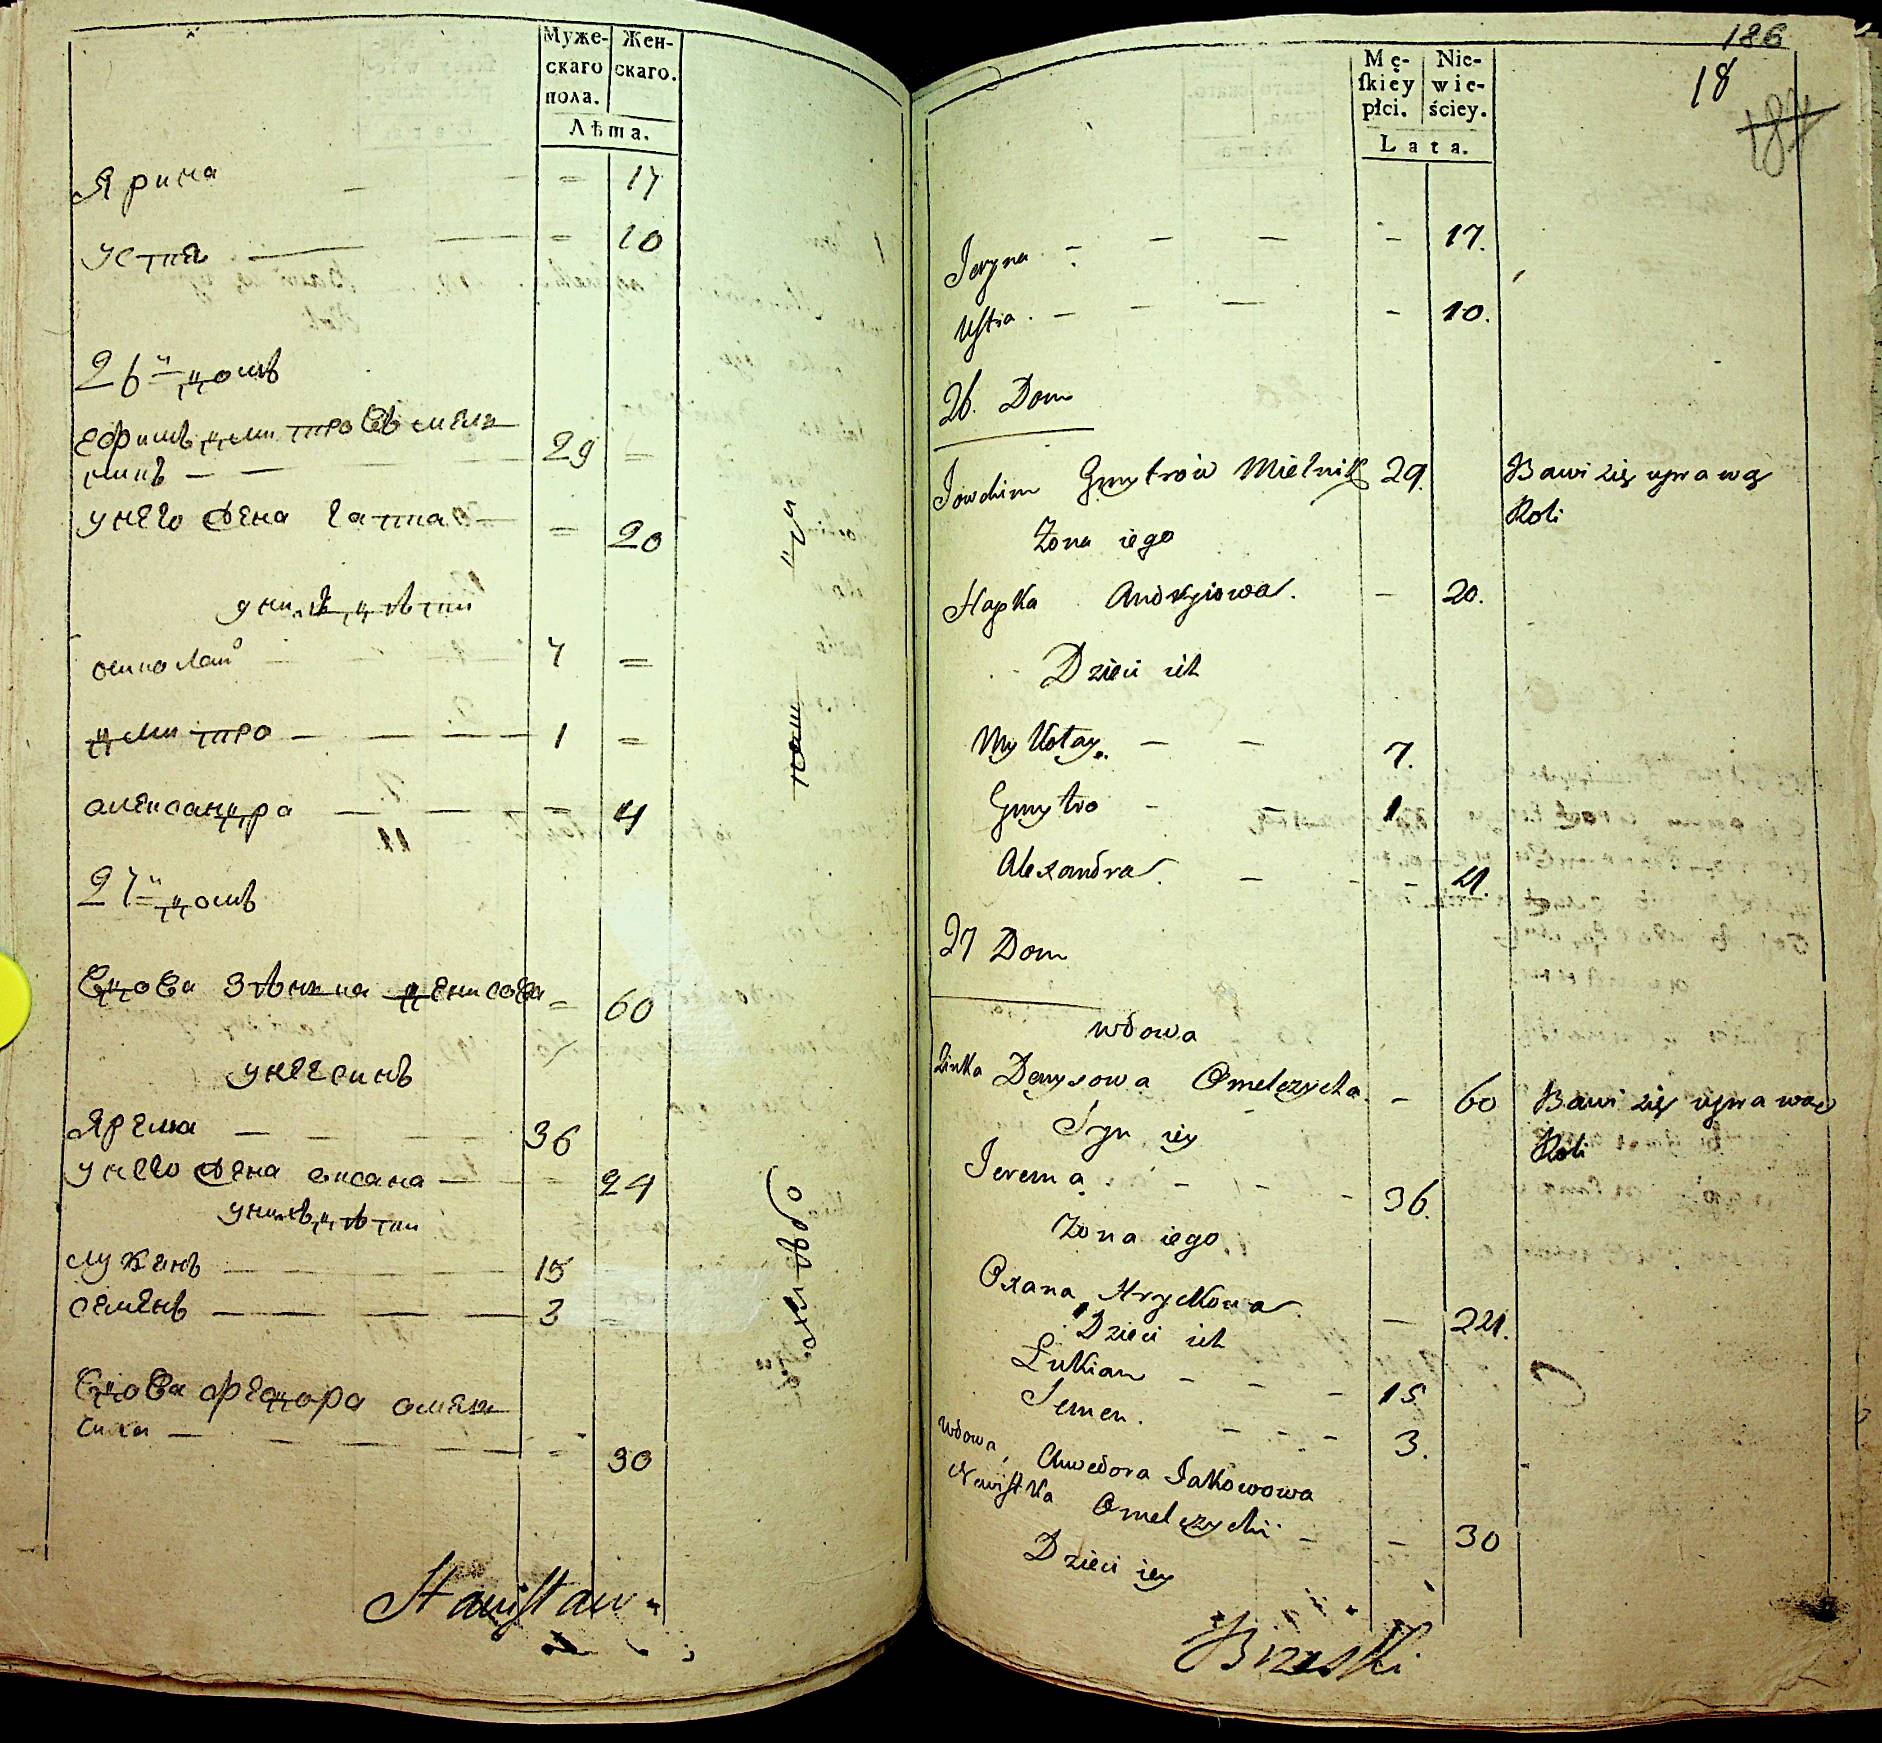 Муже-
скаго
пола.
Жен-
скаго.
Лѣта.
Ярина — — = 17
Устия — — = 10
26й домъ
Ефимъ Дмитровъ мелн
никъ — — 29 =
у него жена Гапка — = 20
у нихъ дѣти
миколай — — 7 =
дмитро — — — 1 =
александра — — — = 4
27й домъ
вдова Зѣнька денисова = 60
у нее синъ
Ярема — — — — 36
у него жена оксана — = 24
у нихъ дѣти
лукянъ — — — 15
семенъ — — — 3 =
вдова федора омелч
сиха — — — — = 30
Stanisław
186
18
187
Mę-
skiey
płci.
Nie-
wie-
ściey.
Lata.
Jeryna — — — — 17.
Ustia . — — — — 10.
26. Dom
Jowchim Gmytrów Mielnik 29. Bawi się uprawą
Roli
Żona iego
Hapka Andryiowa. — 20.
Dzieci ich
Mykołay. — — 7.
Gmytro — — 1.
Alexandra. — — — 4.
27 Dom
wdowa
Zinka Denysowa Omelczycha. — 60 Bawi się uprawą
Roli
Syn iey
Jerema . — — — 36.
Żona iego
Oxana Hryckowa — 24.
Dzieci ich
Łukian — — — 15
Semen. — — — 3.
wdowa Chwedora Jakowowa
Newistka Omelczychi — — 30
Dzieci iey
Brzeski